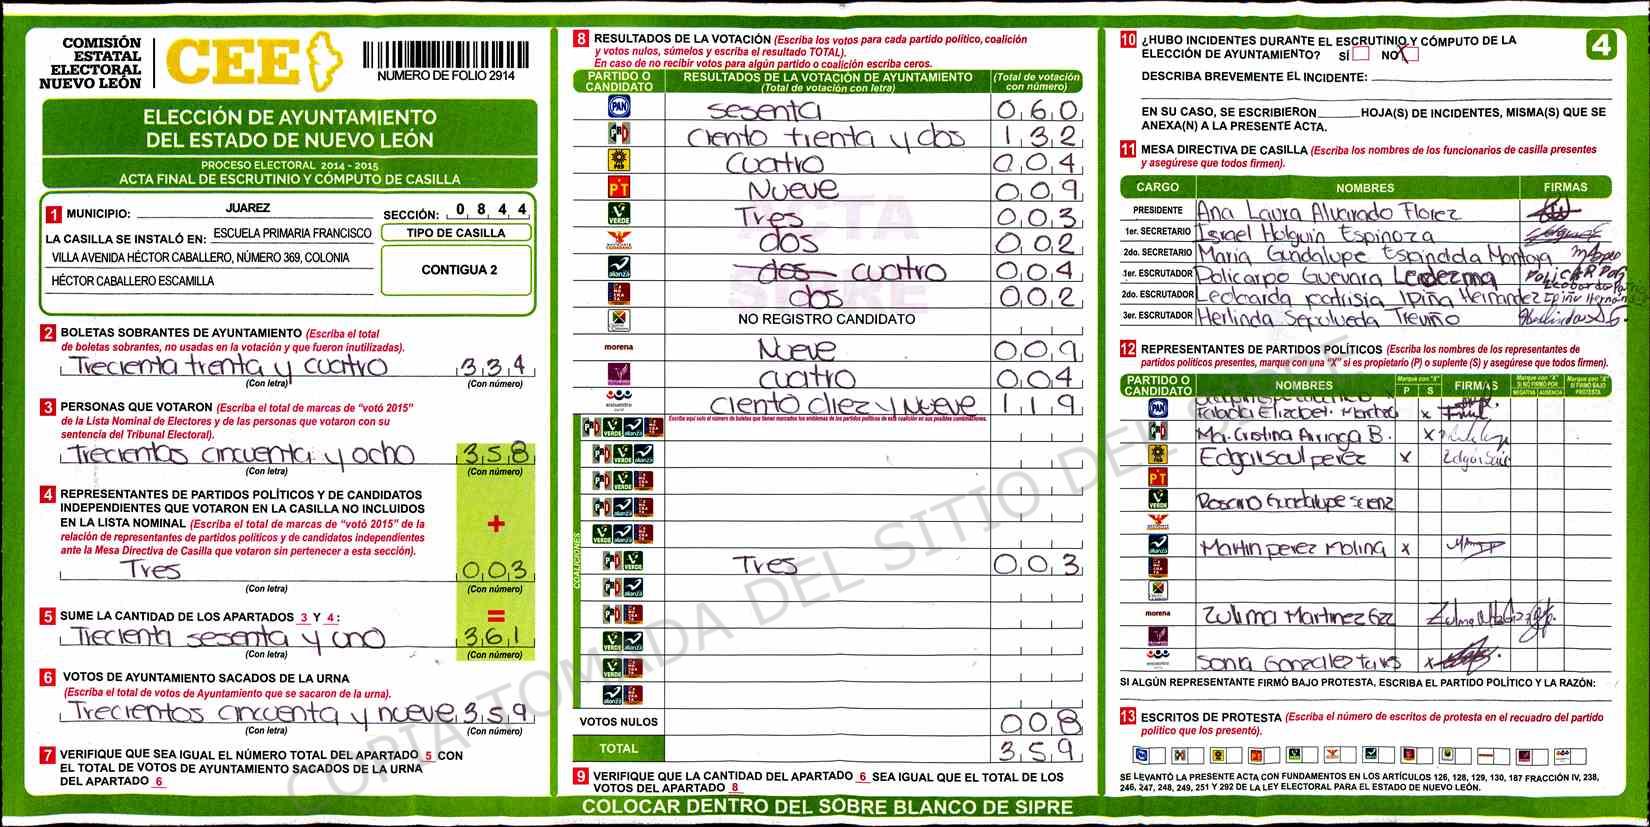 COMISIÓN
ESTATAL
ELECTORAL
NUEVO LEÓN
CEE
NUMERO DE FOLIO 2914
ELECCIÓN DE AYUNTAMIENTO
DEL ESTADO DE NUEVO LEÓN
PROCESO ELECTORAL 2014 - 2015
ACTA FINAL DE ESCRUTINIO Y CÓMPUTO DE CASILLA
1 MUNICIPIO: JUAREZ SECCIÓN: 0 8 4 4
LA CASILLA SE INSTALÓ EN: ESCUELA PRIMARIA FRANCISCO
VILLA AVENIDA HÉCTOR CABALLERO, NÚMERO 369, COLONIA
HÉCTOR CABALLERO ESCAMILLA
TIPO DE CASILLA
CONTIGUA 2
2 BOLETAS SOBRANTES DE AYUNTAMIENTO (Escriba el total
de boletas sobrantes, no usadas en la votación y que fueron inutilizadas).
Trecienta trenta y cuatro 3 3 4
(Con letra) (Con número)
3 PERSONAS QUE VOTARON (Escriba el total de marcas de "votó 2015"
de la Lista Nominal de Electores y de las personas que votaron con su
sentencia del Tribunal Electoral).
Trecientos cincuenta y ocho 3 5 8
(Con letra) (Con número)
4 REPRESENTANTES DE PARTIDOS POLÍTICOS Y DE CANDIDATOS
INDEPENDIENTES QUE VOTARON EN LA CASILLA NO INCLUIDOS
EN LA LISTA NOMINAL (Escriba el total de marcas de "votó 2015" de la
relación de representantes de partidos políticos y de candidatos independientes
ante la Mesa Directiva de Casilla que votaron sin pertenecer a esta sección).
+
Tres 0 0 3
(Con letra) (Con número)
=
5 SUME LA CANTIDAD DE LOS APARTADOS 3 Y 4:
Trecienta sesenta y uno 3 6 1
(Con letra) (Con número)
6 VOTOS DE AYUNTAMIENTO SACADOS DE LA URNA
(Escriba el total de votos de Ayuntamiento que se sacaron de la urna).
Trecientos cincuenta y nueve 3 5 9
(Con letra) (Con número)
7 VERIFIQUE QUE SEA IGUAL EL NÚMERO TOTAL DEL APARTADO 5 CON
EL TOTAL DE VOTOS DE AYUNTAMIENTO SACADOS DE LA URNA
DEL APARTADO 6
8 RESULTADOS DE LA VOTACIÓN (Escriba los votos para cada partido político, coalición
y votos nulos, súmelos y escriba el resultado TOTAL).
En caso de no recibir votos para algún partido o coalición escriba ceros.
PARTIDO O CANDIDATO
RESULTADOS DE LA VOTACIÓN DE AYUNTAMIENTO
(Total de votación con letra)
(Total de votación con número)
PAN sesenta 0 6 0
PRI ciento trenta y dos 1 3 2
PRD cuatro 0 0 4
PT Nueve 0 0 9
VERDE Tres 0 0 3
dos 0 0 2
alianza dos cuatro 0 0 4
dos 0 0 2
NO REGISTRO CANDIDATO
morena Nueve 0 0 9
cuatro 0 0 4
encuentro social ciento diez y nueve 1 1 9
COALICIONES
PRI VERDE Tres 0 0 3
VOTOS NULOS 0 0 8
TOTAL 3 5 9
9 VERIFIQUE QUE LA CANTIDAD DEL APARTADO 6 SEA IGUAL QUE EL TOTAL DE LOS
VOTOS DEL APARTADO 8
COLOCAR DENTRO DEL SOBRE BLANCO DE SIPRE
ACTA
SIPRE
COPIA TOMADA DEL SITIO DEL SIPRE
10 ¿HUBO INCIDENTES DURANTE EL ESCRUTINIO Y CÓMPUTO DE LA
ELECCIÓN DE AYUNTAMIENTO? SÍ NO X
4
DESCRIBA BREVEMENTE EL INCIDENTE:
EN SU CASO, SE ESCRIBIERON HOJA(S) DE INCIDENTES, MISMA(S) QUE SE
ANEXA(N) A LA PRESENTE ACTA.
11 MESA DIRECTIVA DE CASILLA (Escriba los nombres de los funcionarios de casilla presentes
y asegúrese que todos firmen).
CARGO NOMBRES FIRMAS
PRESIDENTE Ana Laura Alvarado Florez
1er. SECRETARIO Israel Holguin Espinoza
2do. SECRETARIO Maria Guadalupe Espindola Montoya
1er. ESCRUTADOR Policarpo Guevara Ledezma
2do. ESCRUTADOR Leobarda patrisia Ipiña Hernandez
3er. ESCRUTADOR Herlinda Sepulveda Treviño
12 REPRESENTANTES DE PARTIDOS POLÍTICOS (Escriba los nombres de los representantes de
partidos políticos presentes, marque con una "X" si es propietario (P) o suplente (S) y asegúrese que todos firmen).
PARTIDO O CANDIDATO
NOMBRES
Marque con "X"
P S
FIRMAS
Marque con "X" SI NO FIRMÓ POR
NEGATIVA AUSENCIA
Marque con "X" SI FIRMÓ BAJO PROTESTA
PAN Fabiola Elizabet x
PRI Ma. Cristina Arriaga B. x
PRD Edgar saul perez x
PT
VERDE Rosario Guadalupe
alianza Martin perez Molina x
morena Zulima Martinez Gzz
encuentro social Sonia Gonzalez x
SI ALGÚN REPRESENTANTE FIRMÓ BAJO PROTESTA, ESCRIBA EL PARTIDO POLÍTICO Y LA RAZÓN:
13 ESCRITOS DE PROTESTA (Escriba el número de escritos de protesta en el recuadro del partido
político que los presentó).
SE LEVANTÓ LA PRESENTE ACTA CON FUNDAMENTOS EN LOS ARTÍCULOS 126, 128, 129, 130, 187 FRACCIÓN IV, 238,
246, 247, 248, 249, 251 Y 292 DE LA LEY ELECTORAL PARA EL ESTADO DE NUEVO LEÓN.